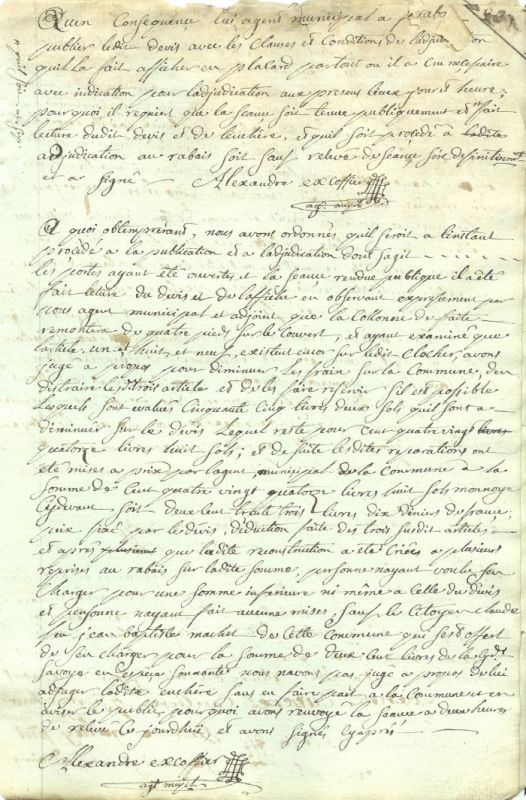 Quen Consequence lui agent municipal a
publier ledit devis avec les Clauses et Conditions de ladjudi on
quil la fait afficher en placard partout ou il a Cru necessaire
avec indication pour ladjudication aux presens lieux jour et heure;
pourquoi il requiert que la Seance soit tenue publiquement et fait
lecture dudit devis et de lenchere, et quil soit procédé à ladite
adjudication au rabais soit sauf releve de seance soit definitivement
et a signé Alexandre excoffier
agt. mupl.
A quoi obtemperant, nous avons ordonné quil seroit a linstant
procédé a la publication et a ladjudication dont sagit
les portes ayant été ouvertes et la seance rendue publique il a été
fait lecture du devis et de laffiche en observant expressement par
nous agent municipal et adjoint que la Colonne de faite
remontera de quatre pieds sur le couvert, et ayant examiné que
larticle, un, huit, et neuf, existent encor sur ledit Clocher, avons
jugé a propos pour diminuer les fraix sur la Commune, den
distraire lesdits trois article et de les faire reservir sil est possible
Lesquels sont evalués Cinquante Cinq livres deux sols quil sont a
diminuer sur le devis Lequel reste pour Cent quatre vingt livres
quatorze livres huit sols; et de suite lesdites reparations ont
été mises a prix par lagent municipal de la Commune a la
somme de Cent quatre vingt quatorze livres huit sols monnoye
Cydevant soit deux Cent trente trois livres dix deniers de france,
prix fixé par le devis, déduction faite des trois susdit articles
et après plusieurs que ladite reconstruction a été Criée a plusieurs
reprises au rabais sur ladite somme, personne nayant voulu sen
Charger pour une somme inferieure ni même a Celle du devis
et personne nayant fait aucune mises, sauf le Citoyen Claude
feu jean baptiste machet de Cette Commune qui sest offert
de sen charger pour la somme de deux Cent livres de la Cydt
Savoye en espece sonnante, nous navons pas jugé a propos de lui
adjuger ladite enchere sans en faire part a la Commune et en
aviser le public, pourquoi avons renvoyé la seance a deux heures
de relevé Ce jourdhui et avons signés Cyaprès
Alexandre excoffier
agt mupl